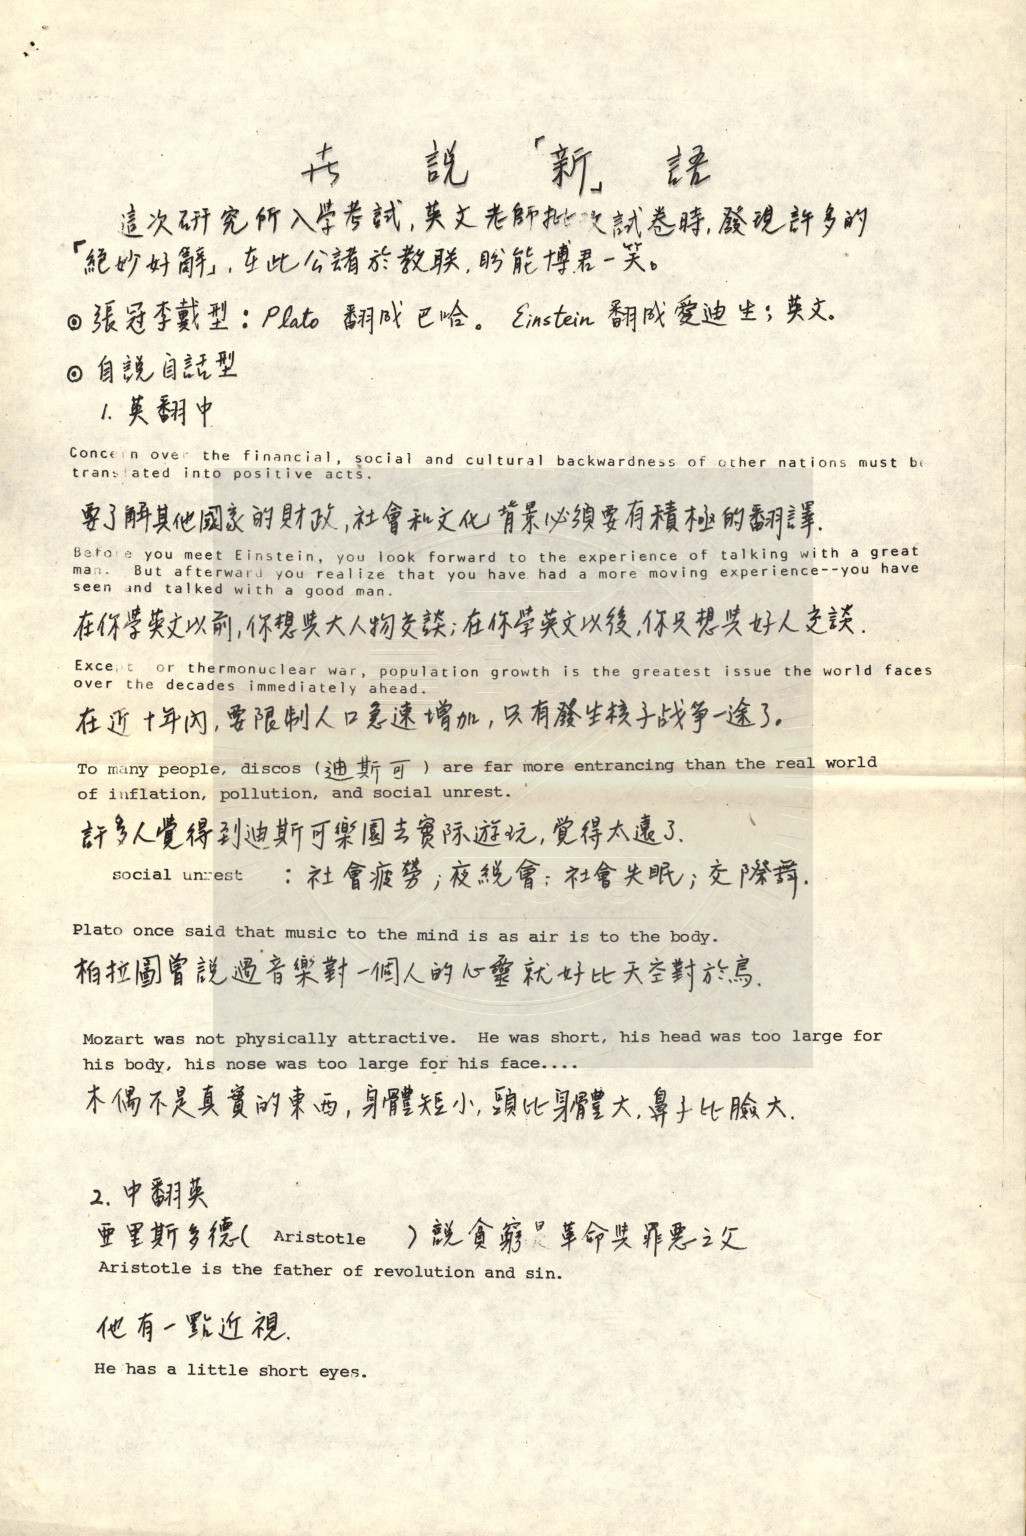 卋 說 「新」 語
這次研究所入學考試,英文老師批改試卷時,發現許多的
「絕妙好辭」,在此公諸於教联,盼能博君一笑。
⊙ 張冠李戴型:Plato 翻成巴哈。 Einstein 翻成愛迪生;英文。
⊙ 自説自話型
1. 英翻中
Concern over the financial, social and cultural backwardness of other nations must be
translated into positive acts.
要了解其他國家的財政,社會和文化背景必須要有積極的翻譯.
Before you meet Einstein, you look forward to the experience of talking with a great
man. But afterward you realize that you have had a more moving experience--you have
seen and talked with a good man.
在你學英文以前,你想与大人物交談;在你學英文以後,你只想与好人交談.
Except for thermonuclear war, population growth is the greatest issue the world faces
over the decades immediately ahead.
在近十年內,要限制人口急速增加,只有發生核子战争一途了。
To many people, discos (迪斯可) are far more entrancing than the real world
of inflation, pollution, and social unrest.
許多人覺得到迪斯可樂園去實际遊玩,覺得太遠了.
social unrest :社會疲勞;夜総會;社會失眠;交際舞.
Plato once said that music to the mind is as air is to the body.
柏拉圖曾説過音樂對一個人的心靈就好比天空對於鳥.
Mozart was not physically attractive. He was short, his head was too large for
his body, his nose was too large for his face....
木偶不是真實的東西,身體短小,頭比身體大,鼻子比臉大.
2. 中翻英
亞里斯多德( Aristotle ) 説貪窮是革命与罪惡之父
Aristotle is the father of revolution and sin.
他有一點近視.
He has a little short eyes.